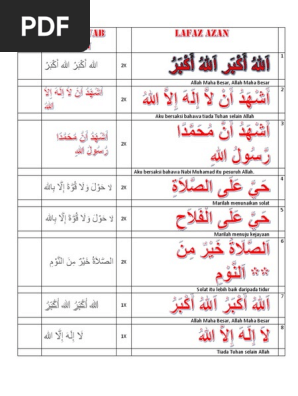 PDF
LAFAZ AZAN
1
اَللهُ أَكْبَر اَللهُ أَكْبَرُ
2X
الله أكْبَرُ الله أكْبَرُ
Allah Maha Besar, Allah Maha Besar
2
أَشْهَدُ أَنْ لاَّ إِلَهَ إِلاَّ اللهُ
2X
أَشْهَدُ أَنْ لاَّ إِلَهَ
إِلاَّ اللهُ
Aku bersaksi bahawa tiada Tuhan selain Allah
3
أَشْهَدُ أَنْ مُحَمَّدًا
رَّسُولُ اللهِ
2X
أَشْهَدُ أَنْ مُحَمَّدًا
رَّسُولُ اللهِ
Aku bersaksi bahawa Nabi Muhamad itu pesuruh Allah.
4
حَيَّ عَلَى الصَّلاَةِ
2X
لا حَوْلَ وَلا قُوَّةَ إِلَّا بِاللهِ
Marilah menunaikan solat
5
حَيَّ عَلَى الْفَلاَحِ
2X
لا حَوْلَ وَلا قُوَّةَ إِلَّا بِاللهِ
Marilah menuju kejayaan
6
اَلصَّلاَةُ خَيْرٌ مِنَ
اَلنَّوْمِ **
2X
الصَّلاةُ خَيْرٌ مِنَ النَّوْمِ
Solat itu lebih baik daripada tidur
7
اَللهُ أَكْبَرُ اَللهُ أَكْبَرُ
1X
الله أكْبَرُ الله أكْبَرُ
Allah Maha Besar, Allah Maha Besar
8
لاَ إِلَهَ إِلاَّ اللهُ
1X
لا إِلَهَ إلَّا الله
Tiada Tuhan selain Allah